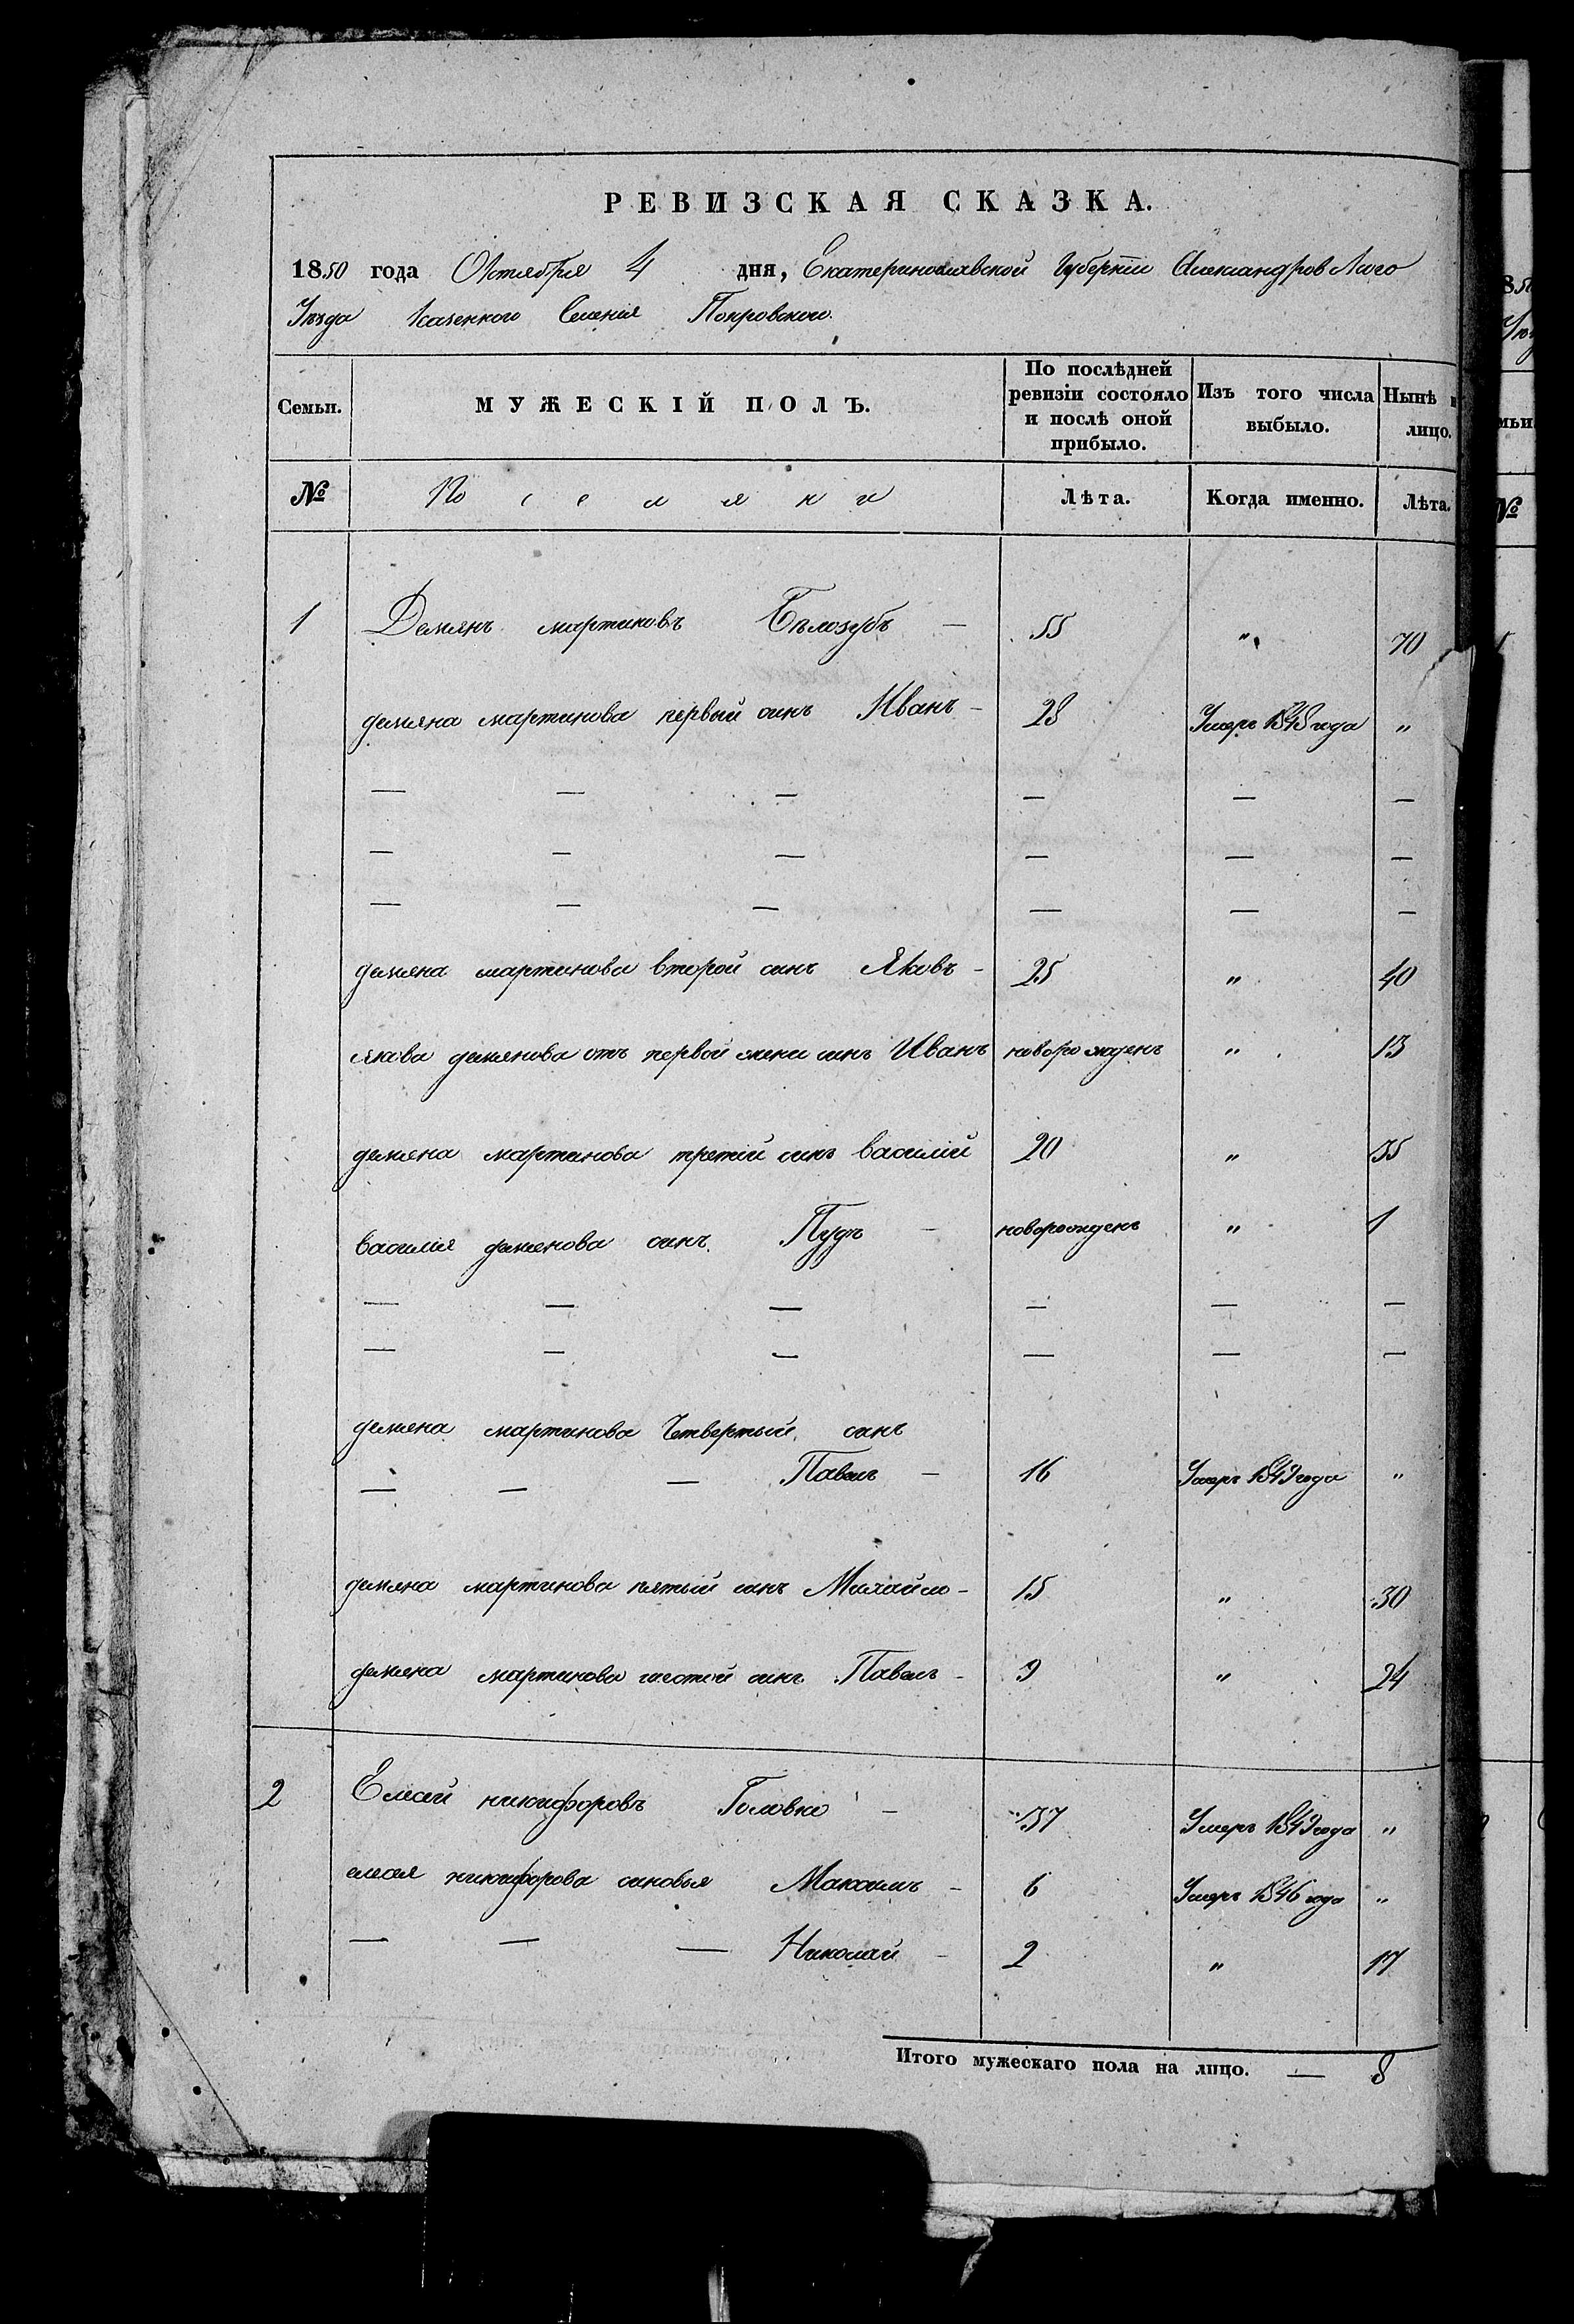 РЕВИЗСКАЯ СКАЗКА.
1850 года Октября 4 дня, Екатеринославской Губерніи Александровскаго
Уѣзда Казенного Селенія Покровского.
Семьи. МУЖЕСКІЙ ПОЛЪ. По послѣдней ревизіи состояло и послѣ оной прибыло. Изъ того числа выбыло. Нынѣ н лицо.
№ Поселяни Лѣта. Когда именно. Лѣта.
1 Демянъ мартиновъ Бѣлозубъ — 55 " 70
демяна мартинова первый синъ Иванъ - 28 Умеръ 1848 года "
— — — — — —
— — — — — —
— — — — — —
демяна мартинова второй синъ Яковъ - 25 " 40
якова демянова отъ первой жени синъ Иванъ новорожденъ " 13
демяна мартинова третій синъ василій 20 " 35
василія демянова синъ Пудъ — новорожденъ " 1
— — — — — —
— — — — — —
демяна мартинова Четвертый синъ
— — — Павелъ — 16 Умеръ 1849 года "
демяна мартинова пятый синъ Михайло - 15 " 30
демяна мартинова шестой синъ Павелъ - 9 " 24
2 Елисей никифоровъ Головко — 37 Умеръ 1849 года "
елисея никифорова синовья Максимъ - 6 Умеръ 1846 года "
— — — Николай - 2 " 17
Итого мужескаго пола на лицо. — 8